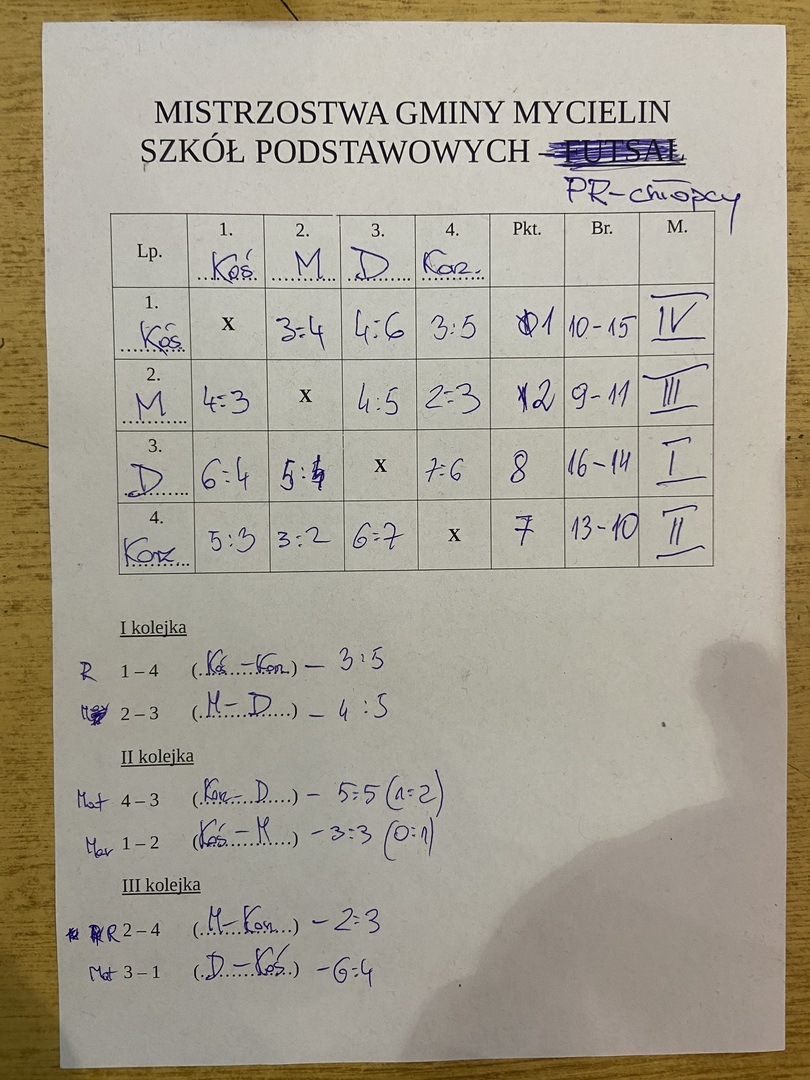 MISTRZOSTWA GMINY MYCIELIN
SZKÓŁ PODSTAWOWYCH – FUTSAL
PR-chłopcy
Lp. 1. Koś 2. M 3. D 4. Korz. Pkt. Br. M.
1. Koś x 3:4 4:6 3:5 1 10-15 IV
2. M 4:3 x 4:5 2:3 2 9-11 III
3. D 6:4 5:4 x 7:6 8 16-14 I
4. Korz. 5:3 3:2 6:7 x 7 13-10 II
I kolejka
R 1 – 4 (Koś - Korz) – 3:5
2 – 3 (M - D) – 4:5
II kolejka
Mat 4 – 3 (Korz - D) – 5:5 (1:2)
Mar 1 – 2 (Koś - M) – 3:3 (0:1)
III kolejka
R 2 – 4 (M - Korz) – 2:3
Mat 3 – 1 (D - Koś) – 6:4